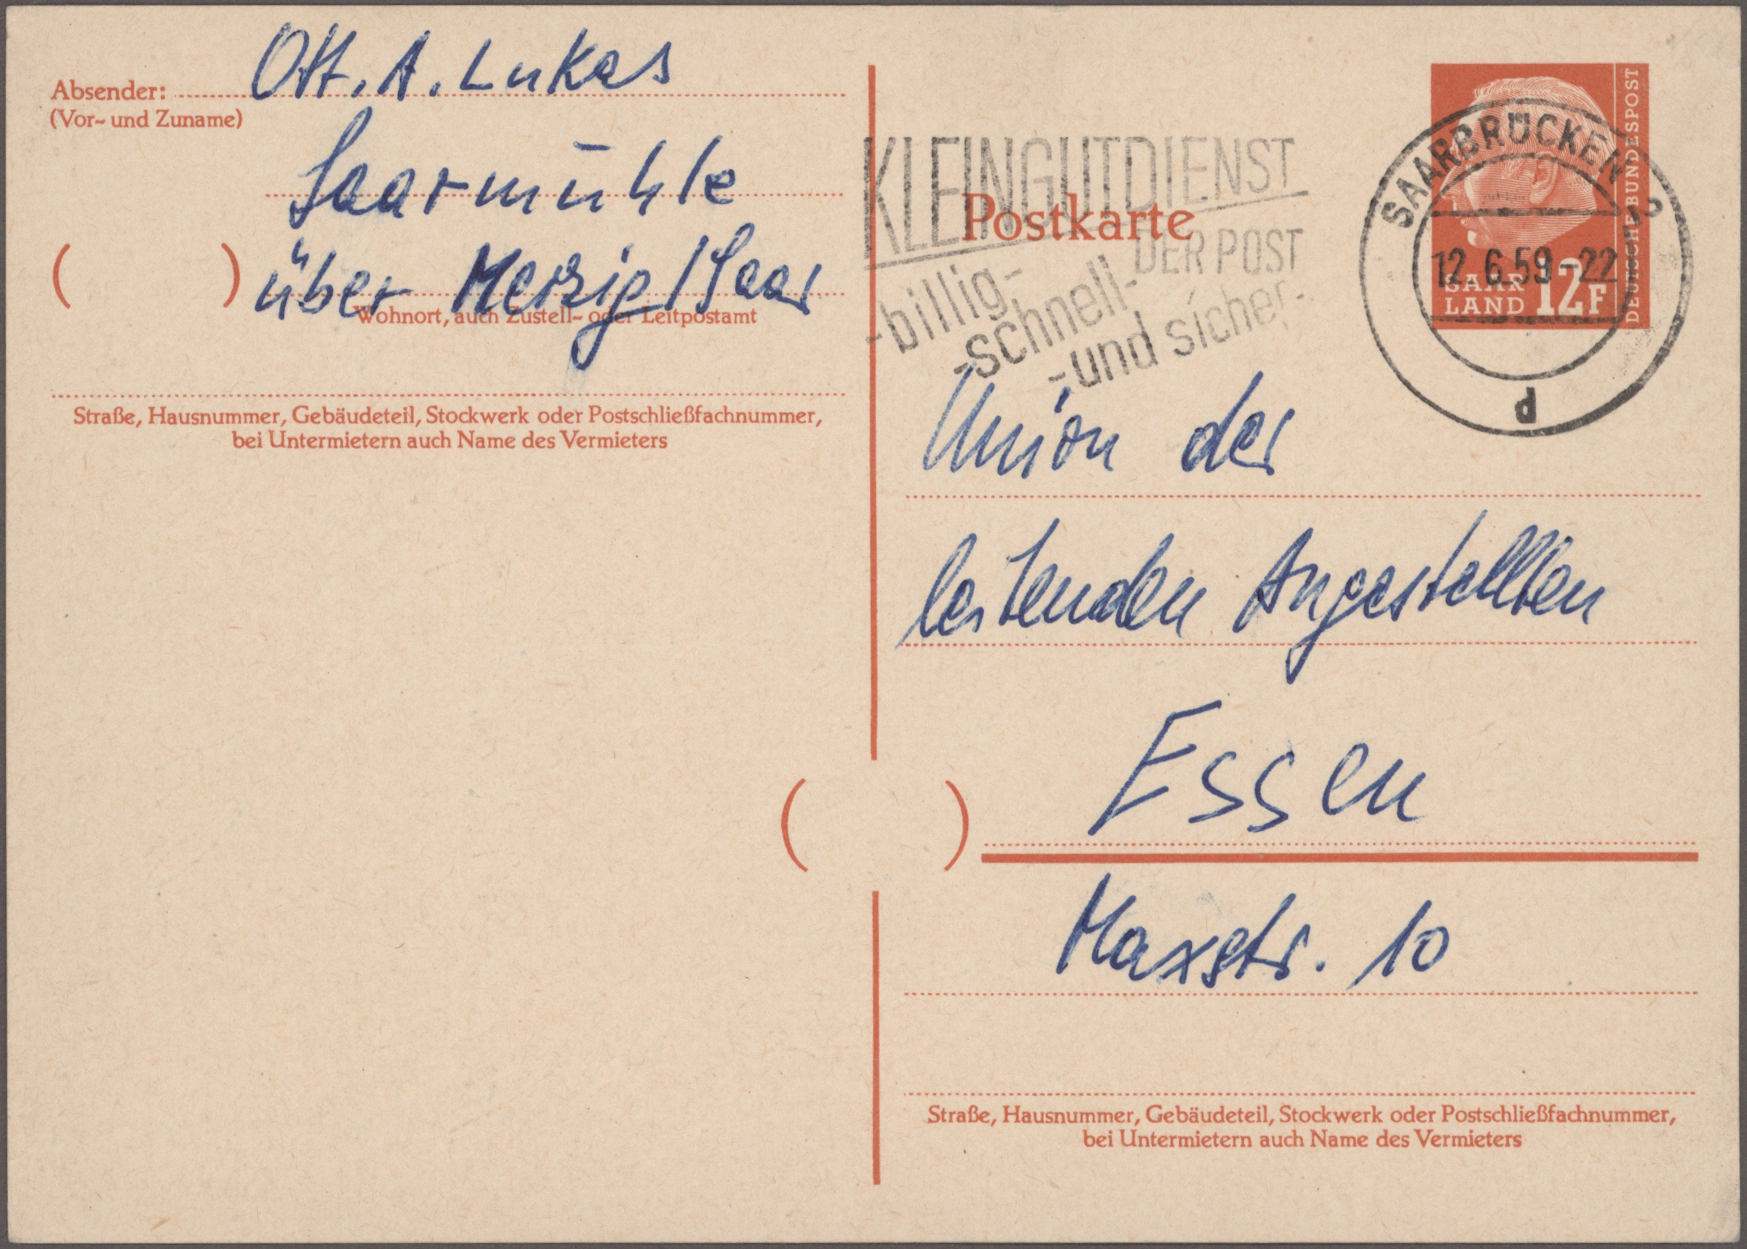 Absender: Ott. A. Lukas
(Vor- und Zuname)
Saarmühle
( ) über Merzig/Saar
Wohnort, auch Zustell- oder Leitpostamt
Straße, Hausnummer, Gebäudeteil, Stockwerk oder Postschließfachnummer,
bei Untermietern auch Name des Vermieters
KLEINGUTDIENST
DER POST
-billig-
-schnell-
-und sicher-
Postkarte
SAARBRÜCKEN 2
12.6.59-22
d
SAAR
LAND 12F
DEUTSCHE BUNDESPOST
Union der
leitenden Angestellten
( ) Essen
Maxstr. 10
Straße, Hausnummer, Gebäudeteil, Stockwerk oder Postschließfachnummer,
bei Untermietern auch Name des Vermieters